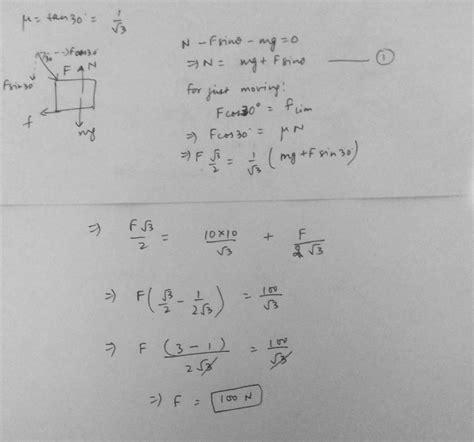 μ = tan30° = 1/√3
30 Fcos30°
F N
Fsin30°
f
mg
N - Fsinθ - mg = 0
⇒ N = mg + Fsinθ — ①
for just moving:
Fcos30° = f_lim
⇒ Fcos30° = μN
⇒ F √3/2 = 1/√3 (mg + F sin30°)
⇒ F√3/2 = 10×10/√3 + F/2√3
⇒ F(√3/2 - 1/2√3) = 100/√3
⇒ F (3 - 1)/2√3 = 100/√3
⇒ F = 100 N